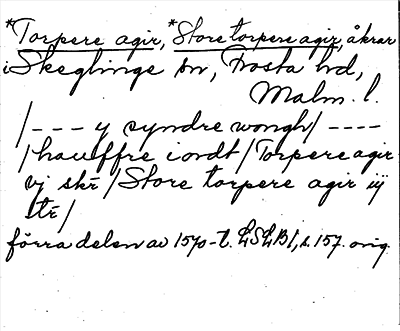 *Torpere agir, *Store torpere agir, åkrar
i Skeglinge sn, Frosta hd,
Malm. l.
/--- y syndre wongh/ ----
/hauffre iordt/ Torpere agir
vj skr̄ /Store torpere agir iij
str̄/
förra delen av 1570-t. LSLB1, s. 157. orig.